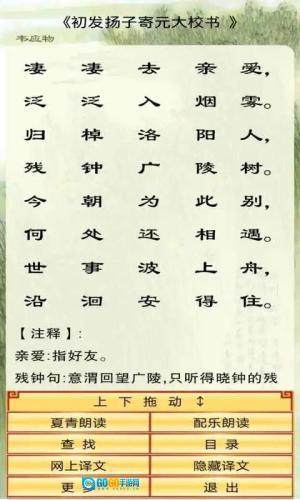 《初发扬子寄元大校书 》
韦应物
凄凄去亲爱，
泛泛入烟雾。
归棹洛阳人，
残钟广陵树。
今朝为此别，
何处还相遇。
世事波上舟，
沿洄安得住。
【注释】：
亲爱:指好友。
残钟句:意谓回望广陵,只听得晓钟的残
上 下 拖 动 ↕
夏青朗读 配乐朗读
查 找 目 录
网上译文 隐藏译文
更 退 出
GOGO手游网